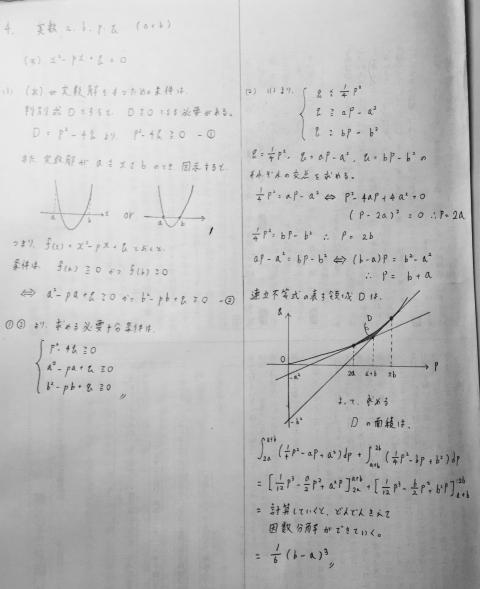 4. 実数 a, b, p, q (a<b)
(*) x²-px+q=0
(1) (*)が実数解をもつための条件は、
判別式Dとすると、D≧0である必要がある。
D = p²-4q より p²-4q≧0 -①
また実数解が a≦x≦b のとき 図示すると、
a b x or a b x
つまり、f(x)=x²-px+q とおくと、
条件は、f(a)≧0 かつ f(b)≧0
⇔ a²-pa+q≧0 かつ b²-pb+q≧0 -②
①②より 求める必要十分条件は、
p²-4q≧0
a²-pa+q≧0
b²-pb+q≧0
(2) (1)より、
q≦1/4p²
q≧ap-a²
q≧bp-b²
q=1/4p², q=ap-a², q=bp-b² の
それぞれの交点を求める。
1/4p²=ap-a² ⇔ p²-4ap+4a²=0
(p-2a)²=0 ∴p=2a
1/4p²=bp-b² ∴ p=2b
ap-a²=bp-b² ⇔ (b-a)p=b²-a²
∴ p=b+a
連立不等式の表す領域Dは、
q
D
0 2a a+b 2b p
-a²
-b²
よって、求める
Dの面積は、
∫_{2a}^{a+b}(1/4p²-ap+a²)dp+∫_{a+b}^{2b}(1/4p²-bp+b²)dp
=[1/12p³-a/2p²+a²p]_{2a}^{a+b}+[1/12p³-b/2p²+b²p]_{a+b}^{2b}
= 計算していくと、どんどんきえて
因数分解ができていく。
= 1/6(b-a)³